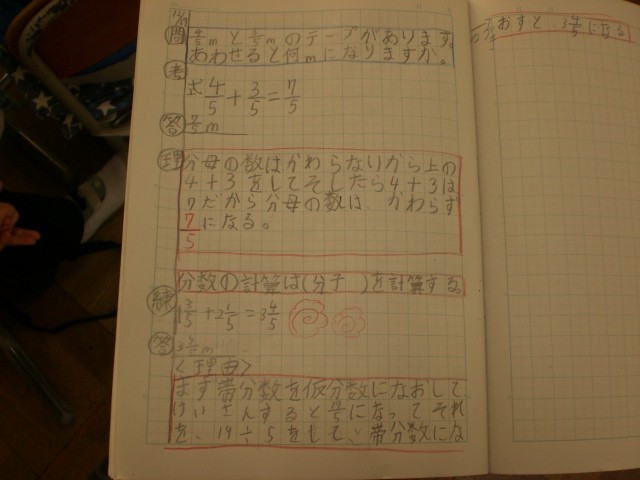 問 4/5mと3/5mのテープがあります。
あわせると何mになりますか。
考
式 4/5+3/5=7/5
答 7/5m
理 分母の数はかわらないから上の
4+3をしてそしたら4+3は
7だから分母の数は、かわらず
7/5になる。
分数の計算は(分子 )を計算する。
練 1 3/5+2 1/5=3 4/5
答 3 4/5m
<理由>
まず帯分数を仮分数になおして
けいさんすると19/5になってそれ
を、19÷5をして、帯分数にな
おすと 3 4/5になる